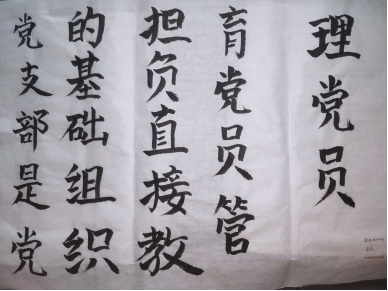 党支部是党
的基础组织
担负直接教
育党员管
理党员